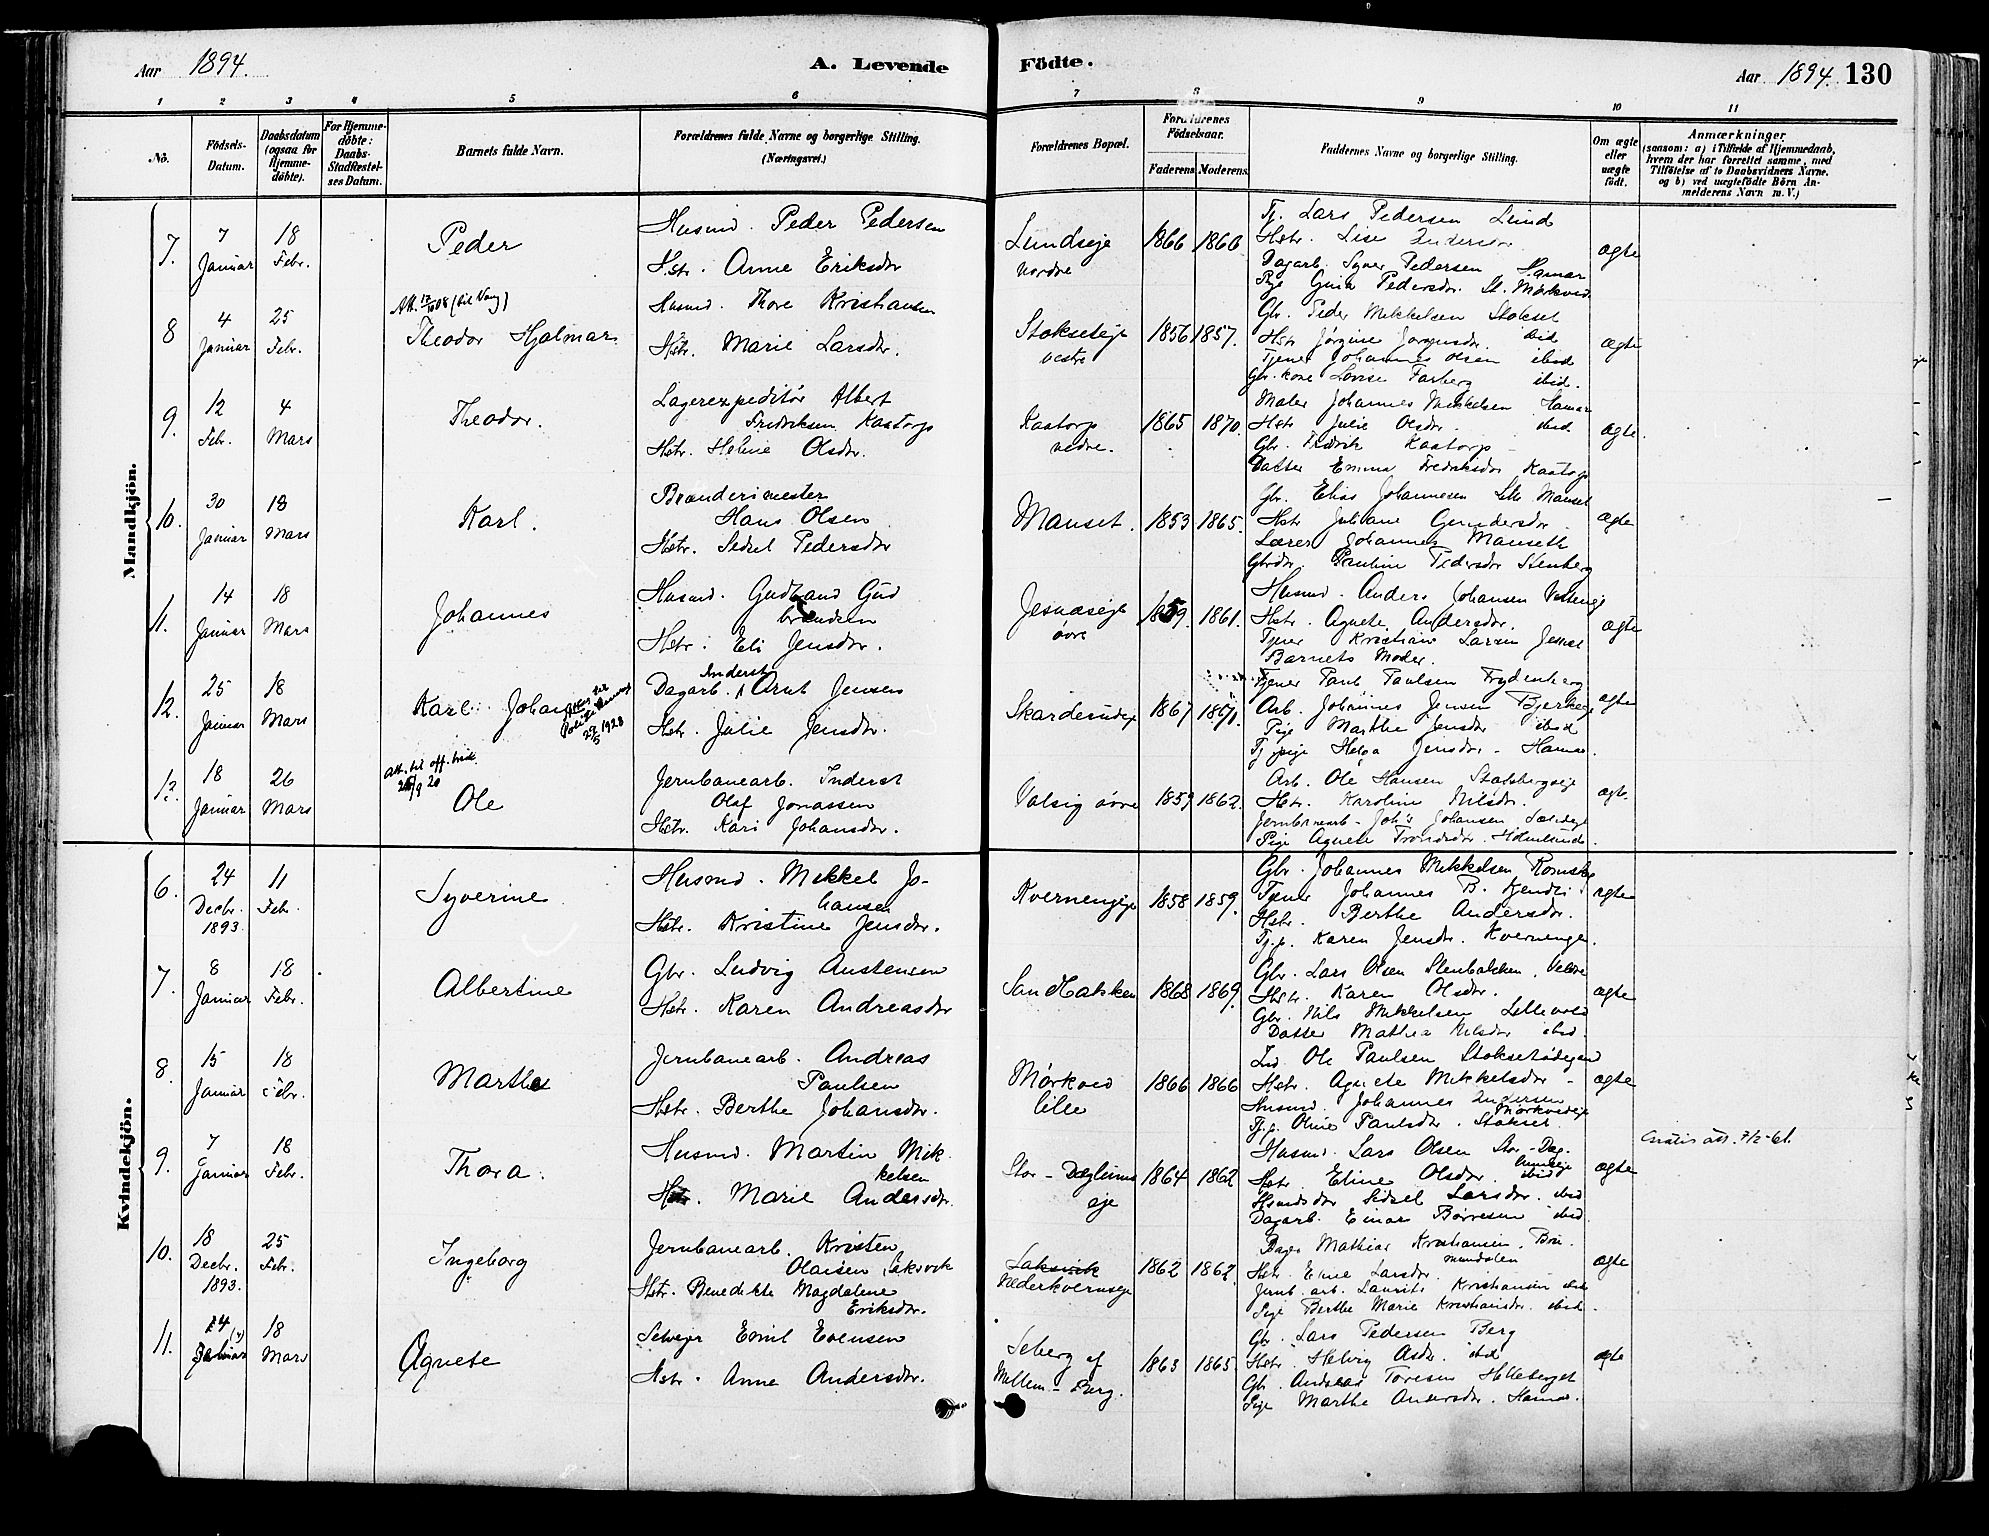 Aar 1894.
A. Levende
Födte.
Aar 1894. 130
1 2 3 4 5 6 7 8 9 10 11
No.
Födsels-Datum.
Daabsdatum (ogsaa for Hjemme-döbte).
For Hjemme-döbte: Daabs-Stadfæstel-ses Datum.
Barnets fulde Navn.
Forældrenes fulde Navne og borgerlige Stilling.
(Næringsvei.)
Forældrenes Bopæl.
Forældrenes Födselsaar.
Faderens Moderens
Faddernes Navne og borgerlige Stilling.
Om ægte eller uægte födt.
Anmærkninger
(saasom: a) i Tilfælde af Hjemmedaab,
hvem der har forrettet samme, med
Tilföielse af to Daabsvidners Navne.
og b) ved uægtefödte Börn An-
melderens Navn m. V.)
Mandkjön.
7. 7 Januar 18 Febr. Peder
Husmd. Peder Pedersen
Hstr. Anne Eriksdtr
Lundseje nordre 1866 1860
Tj. Lars Pedersen Lund
Hstr. Lise Andersdtr
Dagarb. Syver Pedersen Hamar
Pige Gina Pedersdtr. St. Mörkved
ægte
8 4 Januar 25 Febr. Att. 12/10 08 (til Vang)
Theodor Hjalmar
Husmd. Thore Kristiansen
Hstr. Marie Larsdtr.
Stokseteje vestre 1856 1857.
Gbr. Peder Mikkelsen Stokset
Hstr Jørgine Jørgensdtr. ibid
Tjener Johannes Olsen ibid
Gbr. kone Lovise Farberg ibid.
ægte
9. 12 Febr. 4 Mars Theodor.
Lagerexpeditör Albert
Fredriksen Kaatorp
Hstr. Helene Olsdtr.
Kaatorp nedre. 1865 1870.
Maler Johannes Mikkelsen Hamar
Hstr Julie Olsdtr. ibid
Gbr. Fredrik Kaatorp
Datter Emma Fredriksdtr Kaatorp
ægte.
10. 30 Januar 18 Mars Karl.
Brænderimester
Hans Olsen
Hstr. Sidsel Pedersdtr
Manset. 1853 1865.
Gbr. Elias Johannesen Lille Manset
Hstr Juliane Gundersdtr
Lærer Johannes Manseth
Gbrdtr. Pauline Pedersdtr Stenberg
ægte
11. 14 Januar 18 Mars Johannes
Husmd. Gudbrand Gud
brandsen
Hstr. Eli Jensdtr.
Jesnæseje övre 1859. 1861.
Husmd. Anders Johansen
Hstr. Agnete Andersdtr.
Tjener Kristian Larsen Jesnæs
Barnets Moder.
ægte
12. 25 Januar 18 Mars Karl Johan
29/5 1928
Inderst
Dagarb. Arnt Jensen
Hstr. Julie Jensdtr.
Skarderudeje 1867 1871.
Tjener Paul Paulsen Frydenberg
Arb. Johannes Jensen Bjerkeeje
Pige Marthe Jensdtr ibid
Tj pige Helga Jensdtr. Hamar.
ægte
13. 18 Januar 26 Mars Att. til off. bruk 28/9 20
Ole
Jernbanearb. Inderst
Olaf Jonassen
Hstr. Kari Johansdtr.
Valsig övre 1859 1862.
Arb. Ole Hansen
Hstr. Karoline Nilsdtr.
Jernbanearb. Johs Johansen
Pige Agnete Trondsdtr.
ægte
Kvindekjön.
6. 24 Decbr. 1893 11 Febr. Syverine
Husmd. Mikkel Jo-
hansen
Hstr. Kristine Jensdtr.
Kvernengeje 1858 1859.
Gbr. Johannes Mikkelsen
Tjener Johannes B.
Hstr. Berthe Andersdtr.
Tj.p. Karen Jensdtr. Kvernengen.
ægte
7. 8 Januar 18 Febr. Albertine
Gbr. Ludvig Austensen
Hstr. Karen Andreasdtr
Sandbakken 1868 1869.
Gbr. Lars Olsen Stenbakken, Veldre
Hstr. Karen Olsdtr.
Gbr. Nils Mikkelsen Lillevold
Datter Mathea Nilsdtr ibid.
ægte
8. 15 Januar 18 Febr. Marthe
Jernbanearb. Andreas
Paulsen
Hstr. Berthe Johansdtr.
Mörkved lille 1866 1866
Ind. Ole Paulsen
Hstr. Agnete Mikkelsdtr
Husmd. Johannes Andersen Mörkvedeje
Tj.p. Oline Paulsdtr. Stokset
ægte
9. 7 Januar 18 Febr. Thora.
Husmd. Martin Mik-
kelsen
Hstr. Marie Andersdtr.
Stor-Dæglums eje 1864 1862
Husmd. Lars Olsen Stor-Dæg-
Hstr Eline Olsdtr. ibid
Husmdsdtr Sidsel Larsdtr. ibid
Dagarb. Einar Børresen ibid.
ægte
Gratis att. 7/2-61.
10. 18 Decbr. 1893. 25 Febr. Ingeborg
Jernbanearb. Kristen
Olausen Saksvik
Hstr. Benedikte Magdalene
Eriksdtr.
Saksvik
Nederkverneje 1862 1862.
Bager Mathias Kristiansen, Bru-
mundalen
Hstr. Eline Larsdtr.
Jernb. arb. Laurits Kristiansen ibid
Pige Berthe Marie Kristiansdtr. ibid.
ægte
11. 24 Januar 18 Mars Agnete
Selveier Emil Evensen
Hstr. Anne Andersdtr.
Seberg af Mellem-Berg. 1863 1865
Gbr. Lars Pedersen Berg
Hstr. Helvig Asdtr. ibid
Gbr. Andreas Toresen Hilleberget
Pige Marthe Andersdtr. Hamar.
ægte